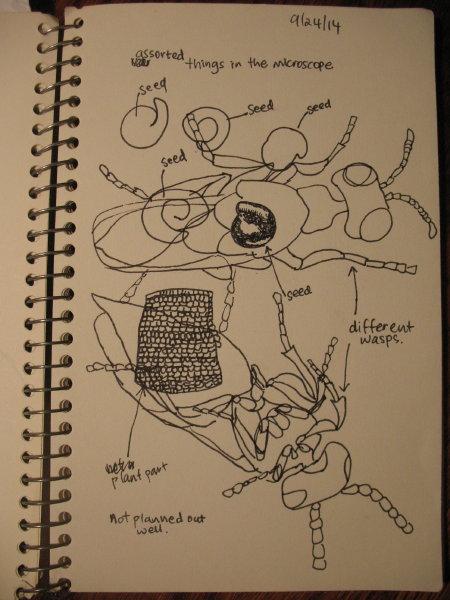 9/24/14
assorted
things in the microscope
seed
seed
seed
seed
seed
different
wasps.
plant part
Not planned out
well.